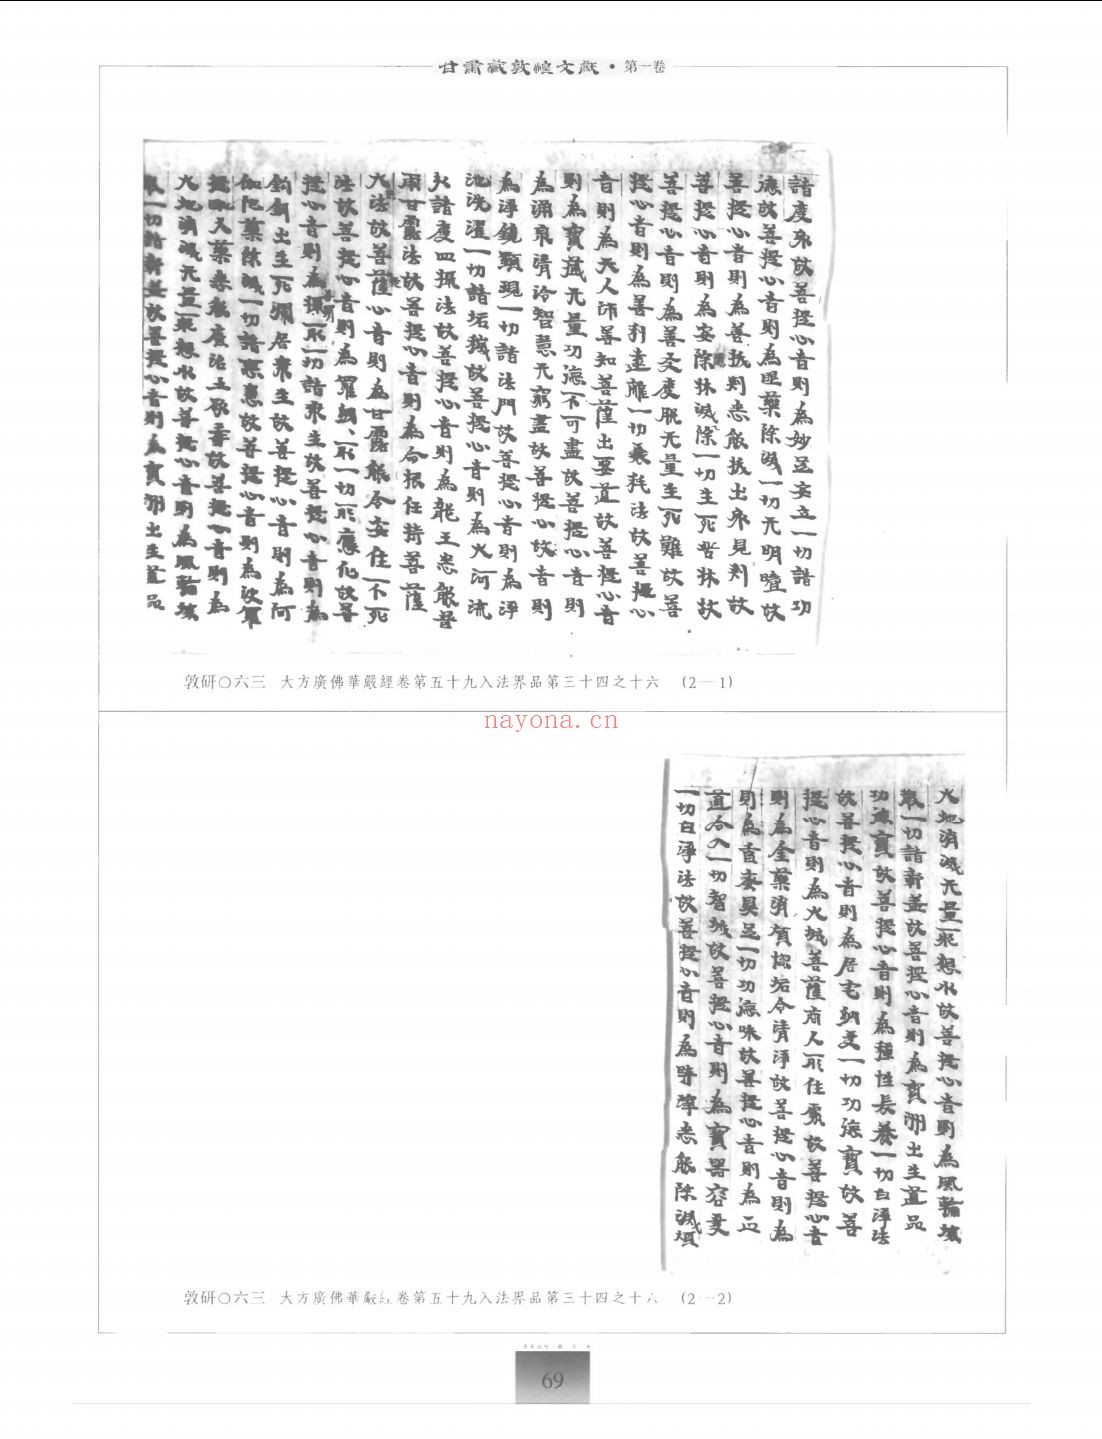 甘肅藏敦煌文獻・第一卷
諸度衆故菩提心者則為妙足安立一切諸功
德故菩提心者則為明藥除滅一切无明曀故
菩提心者則為善拔判悉能拔出衆見判故
菩提心者則為安除牀滅除一切生死苦牀故
菩提心者則為善友度脫无量生死難故菩
提心者則為善利遠離一切衰耗法故菩提心
者則為天人師善知菩薩出要道故菩提心者
則為寶藏无量功德不可盡故菩提心者則
為涌泉清泠智慧无窮盡故菩提心故者則
為淨鏡顯現一切諸法門故菩提心者則為淨
池洗濯一切諸垢穢故菩提心者則為大河流
諸度四攝法故菩提心者則為龍王悉能普
雨甘露法故菩提心者則為命根任持菩薩
大法故菩薩心者則為甘露能令安住不死
法故菩提心者則為羅網一切所應化故菩
提心者則為攝一切諸衆生故菩提心者則為
鈎釣出生死淵居衆生故菩提心者則為阿
伽陀藥除滅一切諸患故菩提心者則為
藥悉能療治故菩提心者則為
火地消滅无量想水故菩提心者則為風輪壞
散一切諸蓋故菩提心者則為寶洲出生道品
敦研〇六三 大方廣佛華嚴經卷第五十九入法界品第三十四之十六 (2—1)
nayona.cn
火地消滅无量想水故菩提心者則為風輪壞
散一切諸蓋故菩提心者則為寶洲出生道品
功德寶故菩提心者則為種性長養一切白淨法
故菩提心者則為居宅一切功德寶故菩
提心者則為大城菩薩商人所住處故菩提心者
則為金藥消煩惱垢令清淨故菩提心者則為
則為香蜜具足一切功德味故菩提心者則為正
道令入一切智城故菩提心者則為寶器容受
一切白淨法故菩提心者則為時澤悉能除滅煩
敦研〇六三 大方廣佛華嚴經卷第五十九入法界品第三十四之十六 (2—2)
69